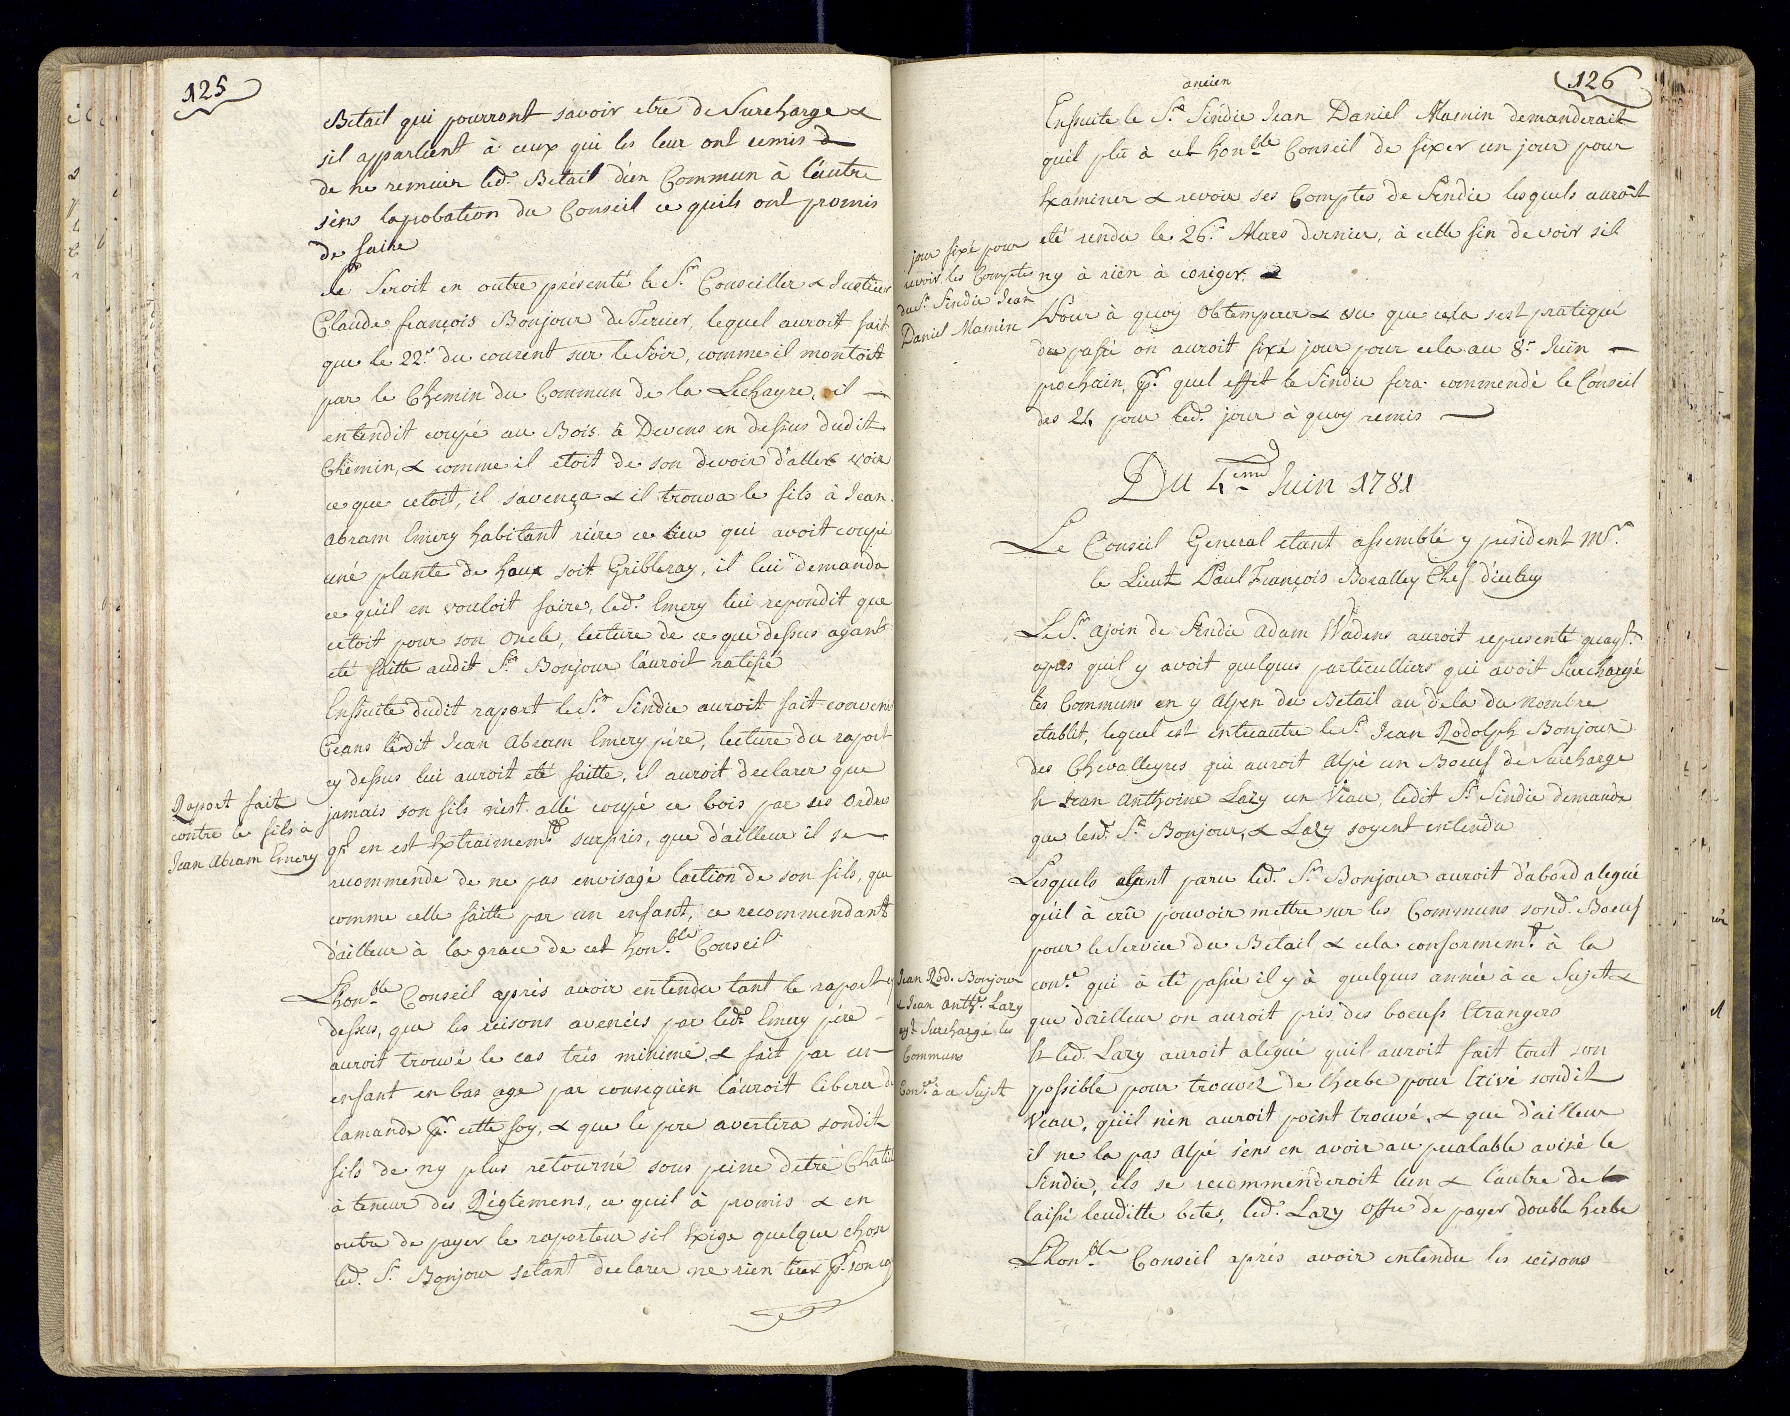 125
Betail qui pourront savoir etre de Surcharge &
sil appartient à ceux qui les leur ont remis &
de ne remuer led.t Betail d'un Commun à l'autre
sens laprobation du Conseil ce quils ont promis
de faire
Se Seroit en outre présenté le S.r Conseiller & Justicier
Claude françois Bonjour de Tercier, lequel auroit fait
que le 22.e du courent sur le Soir, comme il montoit
par le Chemin du Commun de la Lechayre, il
entendit coupé au Bois à Devens en dessus dudit
Chemin, & comme il etoit de son devoir d'aller voir
ce que cetoit, il savença & il trouva le fils à Jean
Abram Emery habitant riére ce lieu qui avoit coupé
uné plante de houx soit Gribleray, il lui demanda
ce quil en vouloit faire, led.t Emery lui repondit que
cetoit pour son Oncle, lecture de ce que dessus ayant
eté faitte audit S.r Bonjour l'auroit ratifié
Ensuite dudit raport le S.r Sindic auroit fait convenir
Ceans ledit Jean Abram Emery pére, lecture du raport
cy dessus lui auroit eté faitte, il auroit declarer que
jamais son fils n'est allé coupé ce bois par ses Ordres
Raport fait
contre le fils à
Jean Abram Emery
qil en est Extraimem.t surpris, que d'ailleur il se
recommende de ne pas envisagé laction de son fils, que
comme celle faitte par un enfant, ce recommendant
d'ailleur à la grace de cet hon.ble Conseil
Lhon.ble Conseil aprés avoir entendu tant le raport cy
dessus, que les reisons avencés par led.t Emery pére
auroit trouvé le cas trés minime, & fait par un
enfant en bas age par consequën l'auroit liberer de
lamande p.r cette foy, & que le pere avertira sondit
fils de ny plus retourné sous peine d'etre Chatié
à teneur des Réglemens, ce quil à promis & en
outre de payer le raporteur sil Exige quelque chose
led.t S.r Bonjour setant declarer ne rien tirer p.r son
126
ancien
Ensuite le S.r Sindic Jean Daniel Mamin demanderait
quil plû à cet hon.ble Conseil de fixer un jour pour
Examiner & revoir ses Comptes de Sindic lesquels auroit
eté rendu le 26.e Mars dernier, à cette fin de voir sil
ny à rien à coriger.
jour fixé pour
revoir les Comptes
du S.r Sindic Jean
Daniel Mamin
Pour à quoy Obtemperer & vu que cela sest pratiqué
du passé on auroit fixé jour pour cela au 8.e Juin
prochain, p.r quel effet le Sindic fera commendé le Conseil
des 24 pour led.t jour à quoy remis
Du 4.eme Juin 1781
Le Conseil General etant assemblé y president M.r
le Lieut. Paul François Boralley Chef d'icelluy
Le S.r ajoin de Sindic Adam Wadens auroit representé quayt
apras quil y avoit quelques particulliers qui avoit Surchargé
les Communs en y Alpen du Betail au dela du Nombre
etablit, lequel est entreautre le S.r Jean Rodolph Bonjour
des Chevalleyres qui auroit Alpé un Boeuf de Surcharge
& Jean Anthoine Lazy un Veau, ledit S.r Sindic demande
que lesd.t S.r Bonjour, & Lazy soyent entendu
Lesquels ayant paru led.t S.r Bonjour auroit d'abord alegué
quil à crü pouvoir mettre sur les Communs sond.t Boeuf
pour le Service du Betail & cela conformem.t à la
con.ce qui à eté passée il y à quelques année à ce Sujet &
que d'ailleur on auroit pris des boeufs Etrangers
Jean Rod. Bonjour
& Jean Anth.e Lazy
ayt Surchargé les
Communs
Con.ce à ce Sujet
& led.t Lazy auroit alegué quil auroit fait tout son
possible pour trouver de l'herbe pour Etivé sondit
Veau, quil n'en auroit point trouvé, & que d'ailleur
il ne la pas Alpé sens en avoir au prealable avisé le
Sindic, ils se recommenderoit lun & lautre de
laissé leuditte betes, led.t Lazy Offre de payer double herbe
Lhon.ble Conseil aprés avoir entendu les reisons